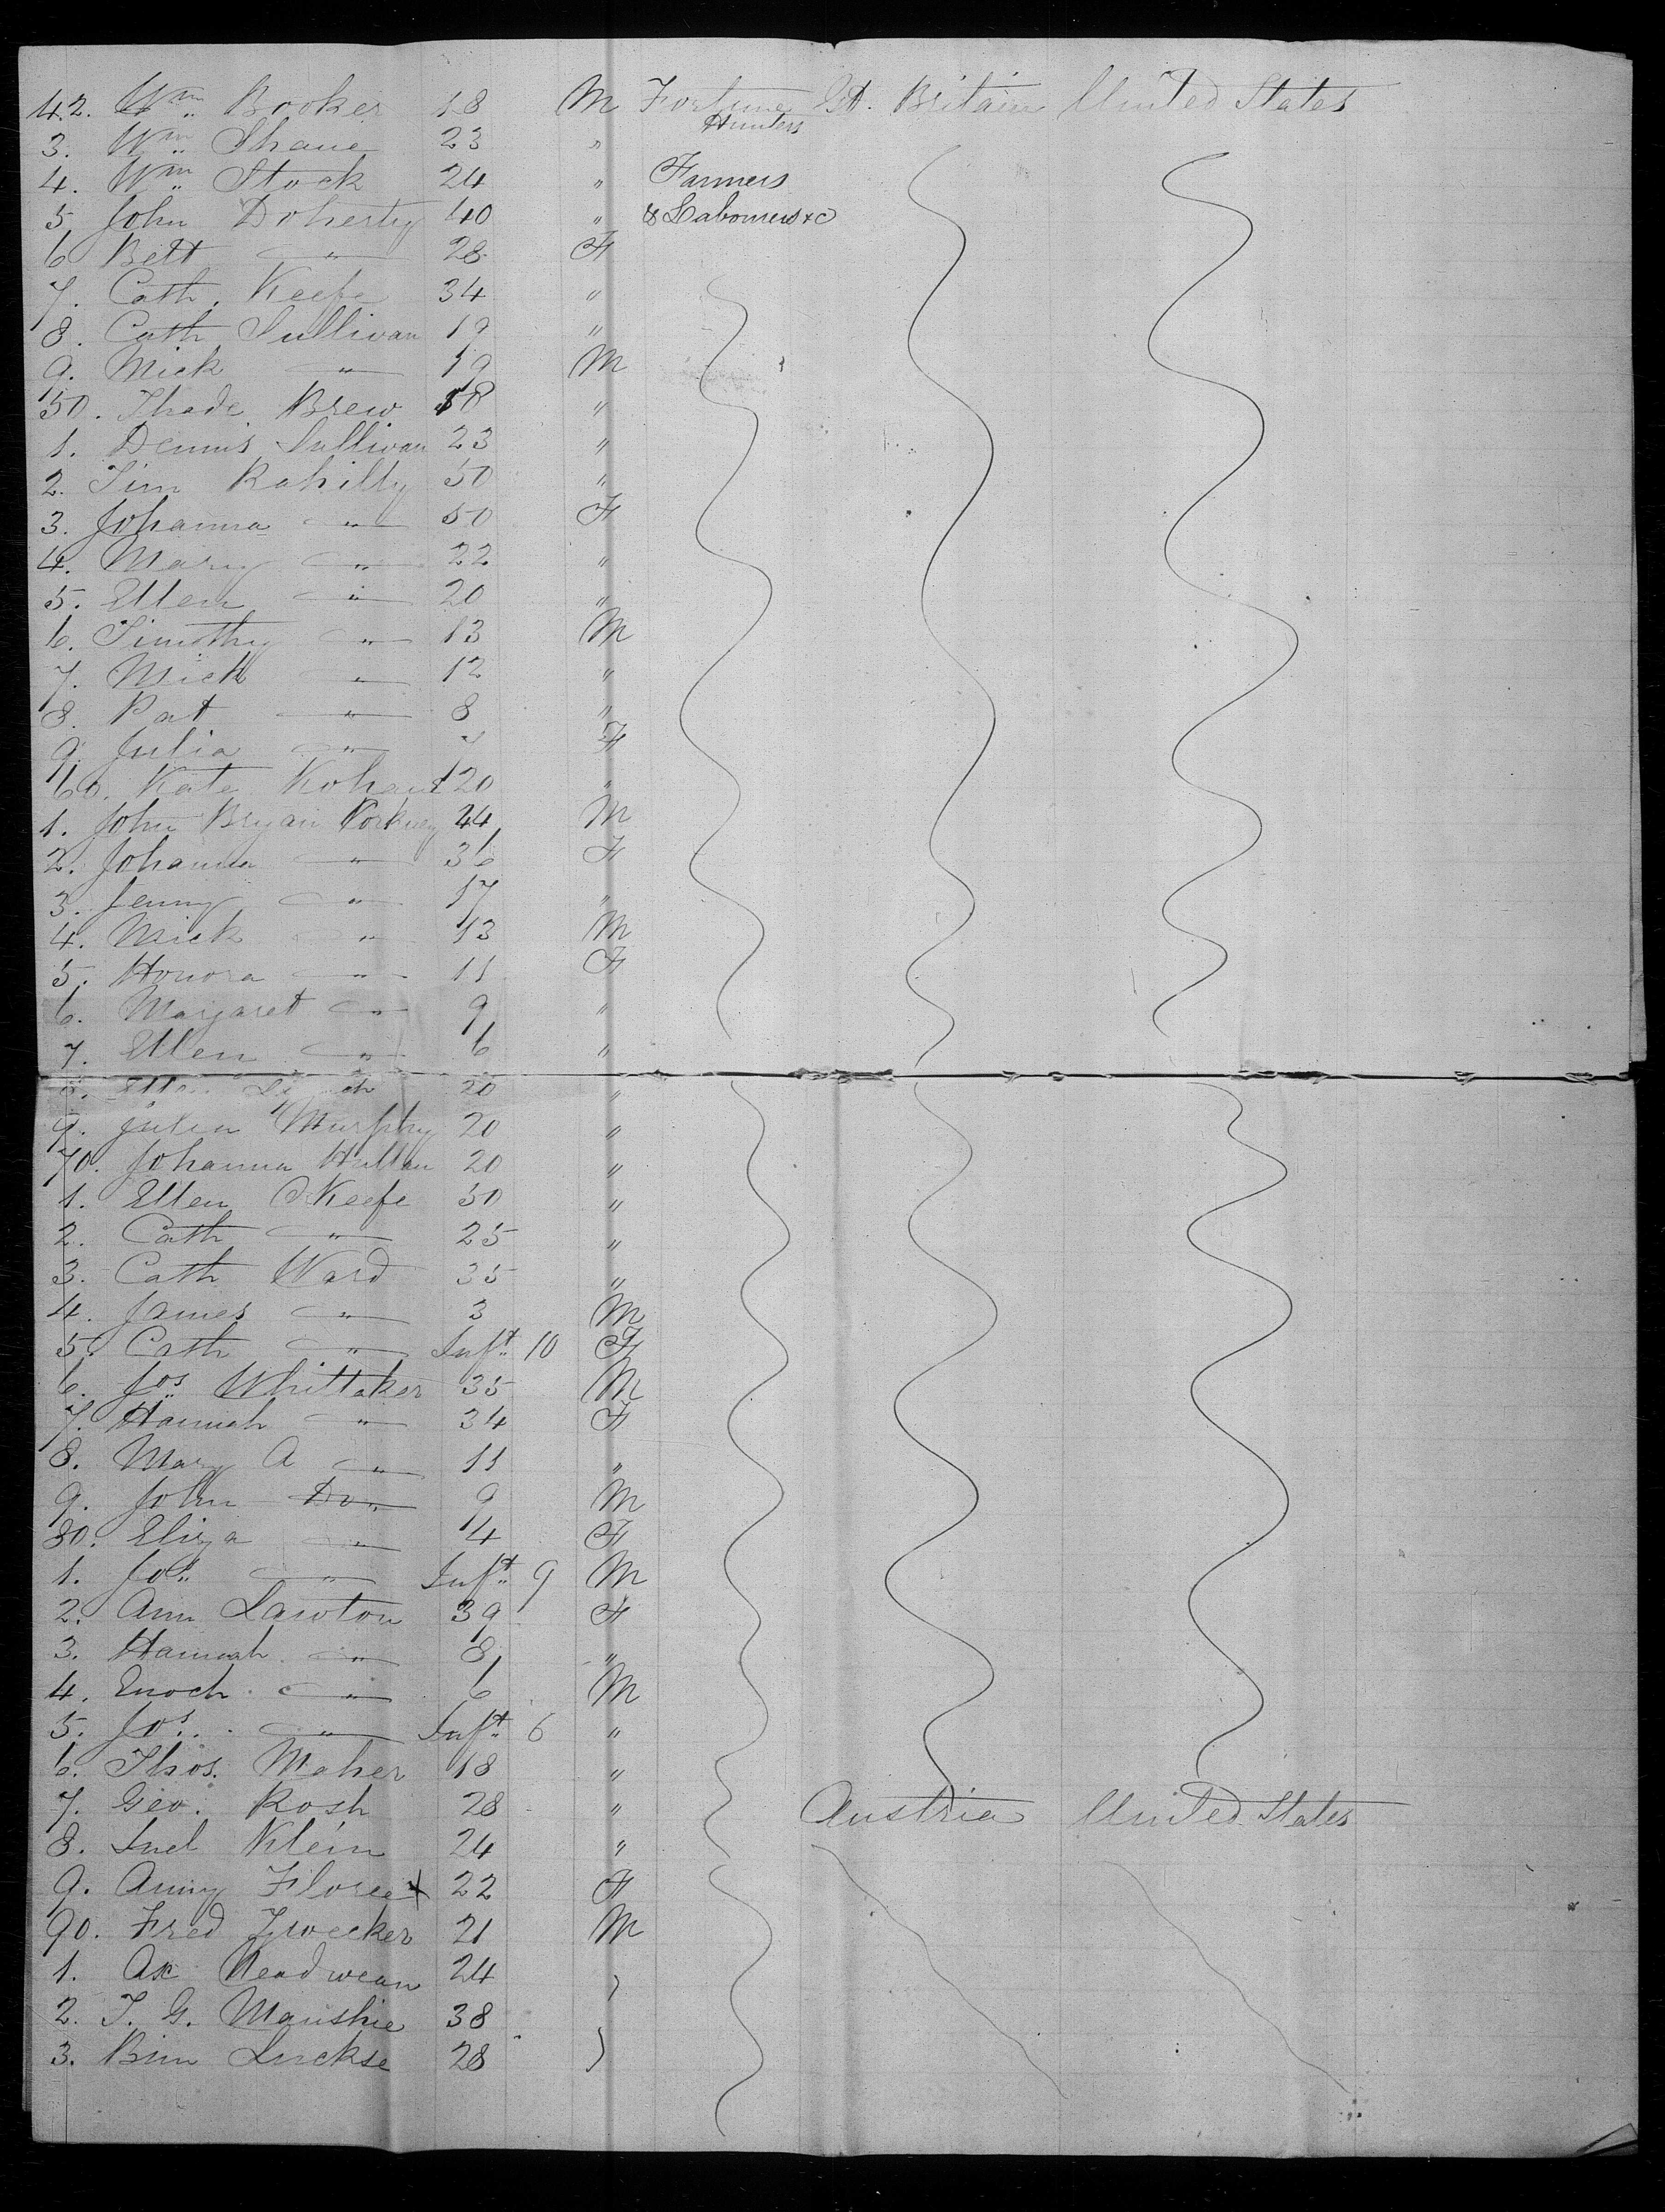 42. Wm Booker 18 M Fortune Gt. Britain United States
Hunters
3. Wm Shane 23 "
4. Wm Stock 24 " Farmers
5 John Doherty 40 " & Labourers &c
6 Bett " 28 F
7. Cath. Keefe 34 "
8. Cath Sullivan 19 "
9. Mick " 19 M
50. Thade Brew 18 "
1. Dennis Sullivan 23 "
2. Tim Rahilly 50 "
3. Johanna " 50 F
4. Mary " 22 "
5. Ellen " 20 "
6. Timothy " 13 M
7. Mick " 12 "
8. Pat " 8 "
9. Julia " F
60. Kate 20 "
1. John Bryan 44 M
2. Johanna " 36 F
3. Jenny " 17 "
4. Mick " 13 M
5. Honora " 11 F
6. Margaret " 9 "
7. Ellen " 6 "
8. Ellen 20 "
9. Julia Murphy 20 "
70. Johanna 20 "
1. Ellen OKeefe 50 "
2. Cath " 25 "
3. Cath Ward 35 "
4. James " 3 M
5. Cath " Inft 10 F
6. Jos Whittaker 35 M
7. Hannah " 34 F
8. Mary A " 11 "
9. John Do 9 M
80. Eliza " 4 F
1. Jos " Inft 9 M
2. Ann Lawton 39 F
3. Hannah " 8 "
4. Enoch " 6 M
5. Jos. " Inft 6 "
6. Thos. Maher 18 "
7. Geo. Rosh 28 " Austria United States
8. Klein 24 "
9. Anny 22 F
90. Fred Zwecker 21 M
1. 24
2. T. G. Manshie 38
3. 28